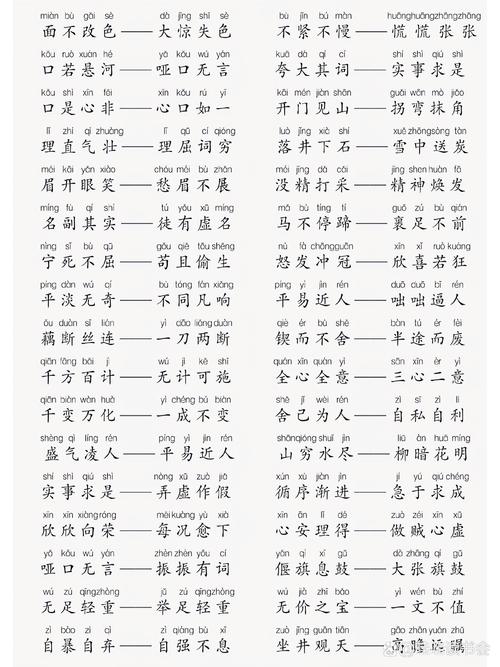 miàn bù gǎi sè dà jīng shī sè
面不改色——大惊失色
kǒu ruò xuán hé yǎ kǒu wú yán
口若悬河——哑口无言
kǒu shì xīn fēi xīn kǒu rú yī
口是心非——心口如一
lǐ zhí qì zhuàng lǐ qū cí qióng
理直气壮——理屈词穷
méi kāi yǎn xiào chóu méi bù zhǎn
眉开眼笑——愁眉不展
míng fù qí shí tú yǒu xū míng
名副其实——徒有虚名
nìng sǐ bù qū gǒu qiě tōu shēng
宁死不屈——苟且偷生
píng dàn wú qí bù tóng fán xiǎng
平淡无奇——不同凡响
ǒu duàn sī lián yì dāo liǎng duàn
藕断丝连——一刀两断
qiān fāng bǎi jì wú jì kě shī
千方百计——无计可施
qiān biàn wàn huà yì chéng bú biàn
千变万化——一成不变
shèng qì líng rén píng yì jìn rén
盛气凌人——平易近人
shí shì qiú shì nòng xū zuò jiǎ
实事求是——弄虚作假
xīn xīn xiàng róng měi kuàng yù xià
欣欣向荣——每况愈下
yǎ kǒu wú yán zhèn zhèn yǒu cí
哑口无言——振振有词
wú zú qīng zhòng jǔ zú qīng zhòng
无足轻重——举足轻重
zì bào zì qì zì qiáng bù xī
自暴自弃——自强不息
bù jǐn bú màn huāng huāng zhāng zhāng
不紧不慢——慌慌张张
kuā dà qí cí shí shì qiú shì
夸大其词——实事求是
kāi mén jiàn shān guǎi wān mò jiǎo
开门见山——拐弯抹角
luò jǐng xià shí xuě zhōng sòng tàn
落井下石——雪中送炭
méi jīng dǎ cǎi jīng shen huàn fā
没精打采——精神焕发
mǎ bù tíng tí guǒ zú bù qián
马不停蹄——裹足不前
nù fà chōng guān xīn xǐ ruò kuáng
怒发冲冠——欣喜若狂
píng yì jìn rén duō duō bī rén
平易近人——咄咄逼人
qiè ér bù shě bàn tú ér fèi
锲而不舍——半途而废
quán xīn quán yì sān xīn èr yì
全心全意——三心二意
shě jǐ wèi rén zì sī zì lì
舍己为人——自私自利
shān qióng shuǐ jìn liǔ àn huā míng
山穷水尽——柳暗花明
xún xù jiàn jìn jí yú qiú chéng
循序渐进——急于求成
xīn ān lǐ dé zuò zéi xīn xū
心安理得——做贼心虚
yǎn qí xī gǔ dà zhāng qí gǔ
偃旗息鼓——大张旗鼓
wú jià zhī bǎo yì wén bù zhí
无价之宝——一文不值
zuò jǐng guān tiān gāo zhān yuǎn zhǔ
坐井观天——高瞻远瞩